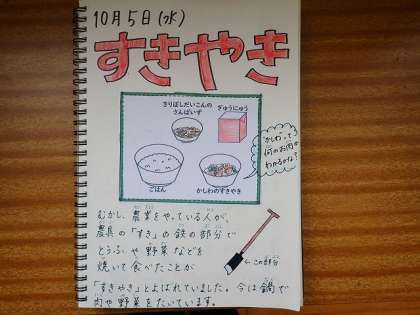 10月5日(水)
すきやき
きりぼしだいこんの
さんばいず
ぎゅうにゅう
ごはん
かしわのすきやき
"かしわ"って
何のお肉か
わかるかな?
むかし、農業をやっている人が、
農具の「すき」の鉄の部分で
とうふや野菜などを
焼いて食べたことが
←この部分
「すきやき」とよばれていました。今は鍋で
肉や野菜をたいています。